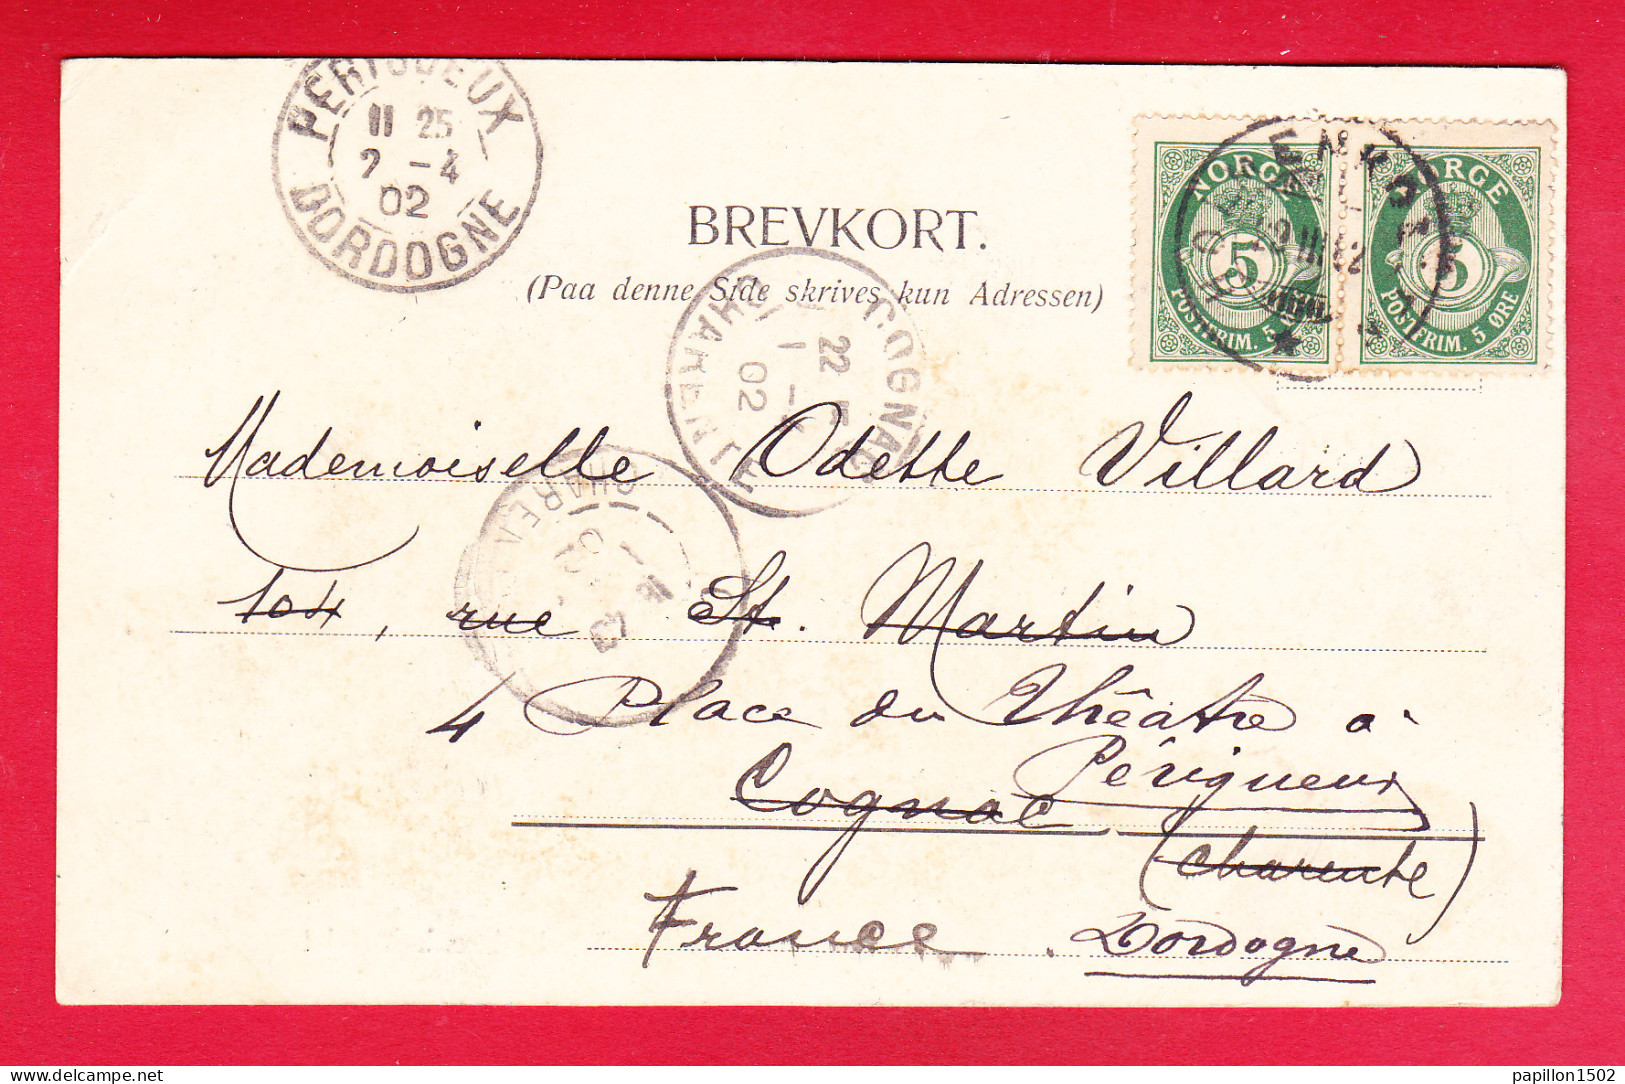 PERIGUEUX
11 25
2 -4
02
DORDOGNE
BREVKORT.
(Paa denne Side skrives kun Adressen)
NORGE
5
POSTFRIM. 5
NORGE
5
POSTFRIM. 5 ØRE
COGNAC
22
1
02
CHARENTE
Mademoiselle Odette Villard
104, rue St. Martin
4 Place du Théâtre à
Périgueux
Cognac
(Charente)
France. Dordogne
papillon1502